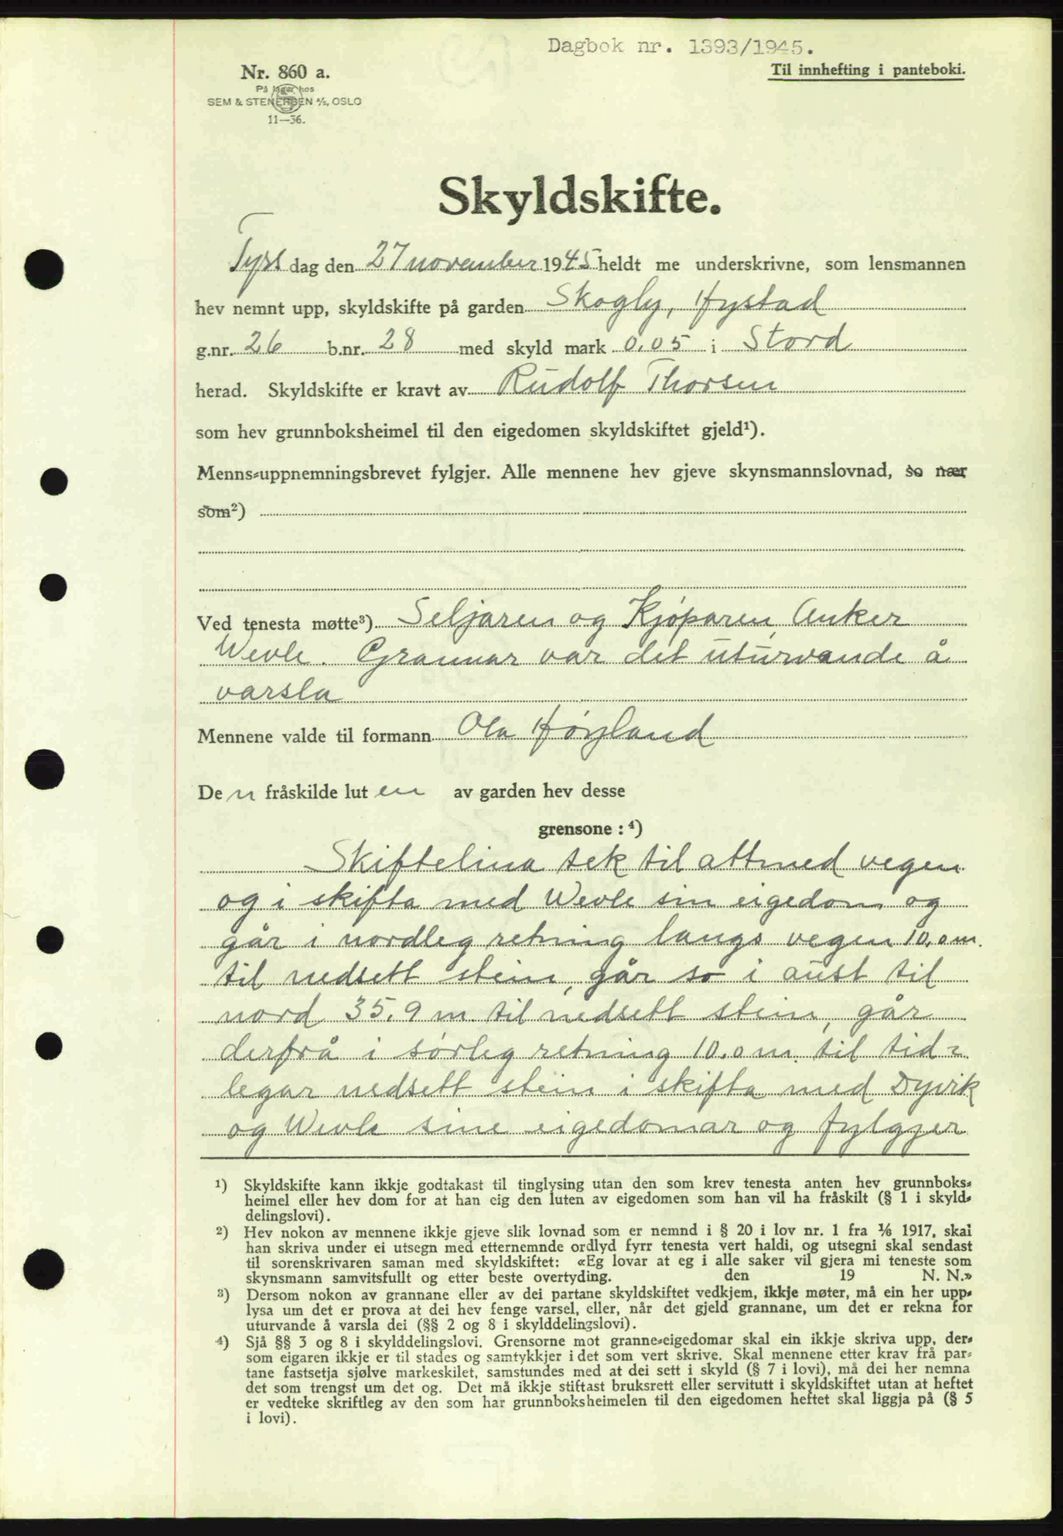 Dagbok nr. 1393/1945.
Nr. 860 a.
Til innhefting i panteboki.
På lager hos
SEM & STENERSEN A/S, OSLO
11—36.
Skyldskifte.
Tys dag den 27 november 1945 heldt me underskrivne, som lensmannen
hev nemnt upp, skyldskifte på garden Skogly, Hystad
g.nr. 26 b.nr. 28 med skyld mark 0.05 i Stord
herad. Skyldskifte er kravt av Rudolf Thorsen
som hev grunnboksheimel til den eigedomen skyldskiftet gjeld¹).
Menns-uppnemningsbrevet fylgjer. Alle mennene hev gjeve skynsmannslovnad, so nær
som²)
Ved tenesta møtte³) Seljaren og Kjøparen Anker
Wevle. Grannar var det uturvande å
varsla
Mennene valde til formann Ola Høyland
De n fråskilde lut en av garden hev desse
grensone : ⁴)
Skiftelina tek til attmed vegen
og i skifta med Wevle sin eigedom og
går i nordleg retning langs vegen 10.0 m.
til nedsett stein, går so i aust til
nord 35.9 m til nedsett stein, går
derfrå i sørleg retning 10.0 m. til tid=
legar nedsett stein i skifta med Dyvik
og Wevle sine eigedomar og fylgjer
¹) Skyldskifte kann ikkje godtakast til tinglysing utan den som krev tenesta anten hev grunnboks-
heimel eller hev dom for at han eig den luten av eigedomen som han vil ha fråskilt (§ 1 i skyld-
delingslovi).
²) Hev nokon av mennene ikkje gjeve slik lovnad som er nemnd i § 20 i lov nr. 1 fra 1/6 1917, skal
han skriva under ei utsegn med etternemnde ordlyd fyrr tenesta vert haldi, og utsegni skal sendast
til sorenskrivaren saman med skyldskiftet: «Eg lovar at eg i alle saker vil gjera mi teneste som
skynsmann samvitsfullt og etter beste overtyding. den 19 N. N.»
³) Dersom nokon av grannane eller av dei partane skyldskiftet vedkjem, ikkje møter, må ein her upp-
lysa um det er prova at dei hev fenge varsel, eller, når det gjeld grannane, um det er rekna for
uturvande å varsla dei (§§ 2 og 8 i skylddelingslovi).
⁴) Sjå §§ 3 og 8 i skylddelingslovi. Grensorne mot granne-eigedomar skal ein ikkje skriva upp, der-
som eigaren ikkje er til stades og samtykkjer i det som vert skrive. Skal mennene etter krav frå par-
tane fastsetja sjølve markeskilet, samstundes med at dei sett i skyld (§ 7 i lovi), må dei her nemna
det som trengst um det og. Det må ikkje stiftast bruksrett eller servitutt i skyldskiftet utan at heftet
er vedteke skriftleg av den som har grunnboksheimelen til den eigedomen heftet skal liggja på (§ 5
i lovi).